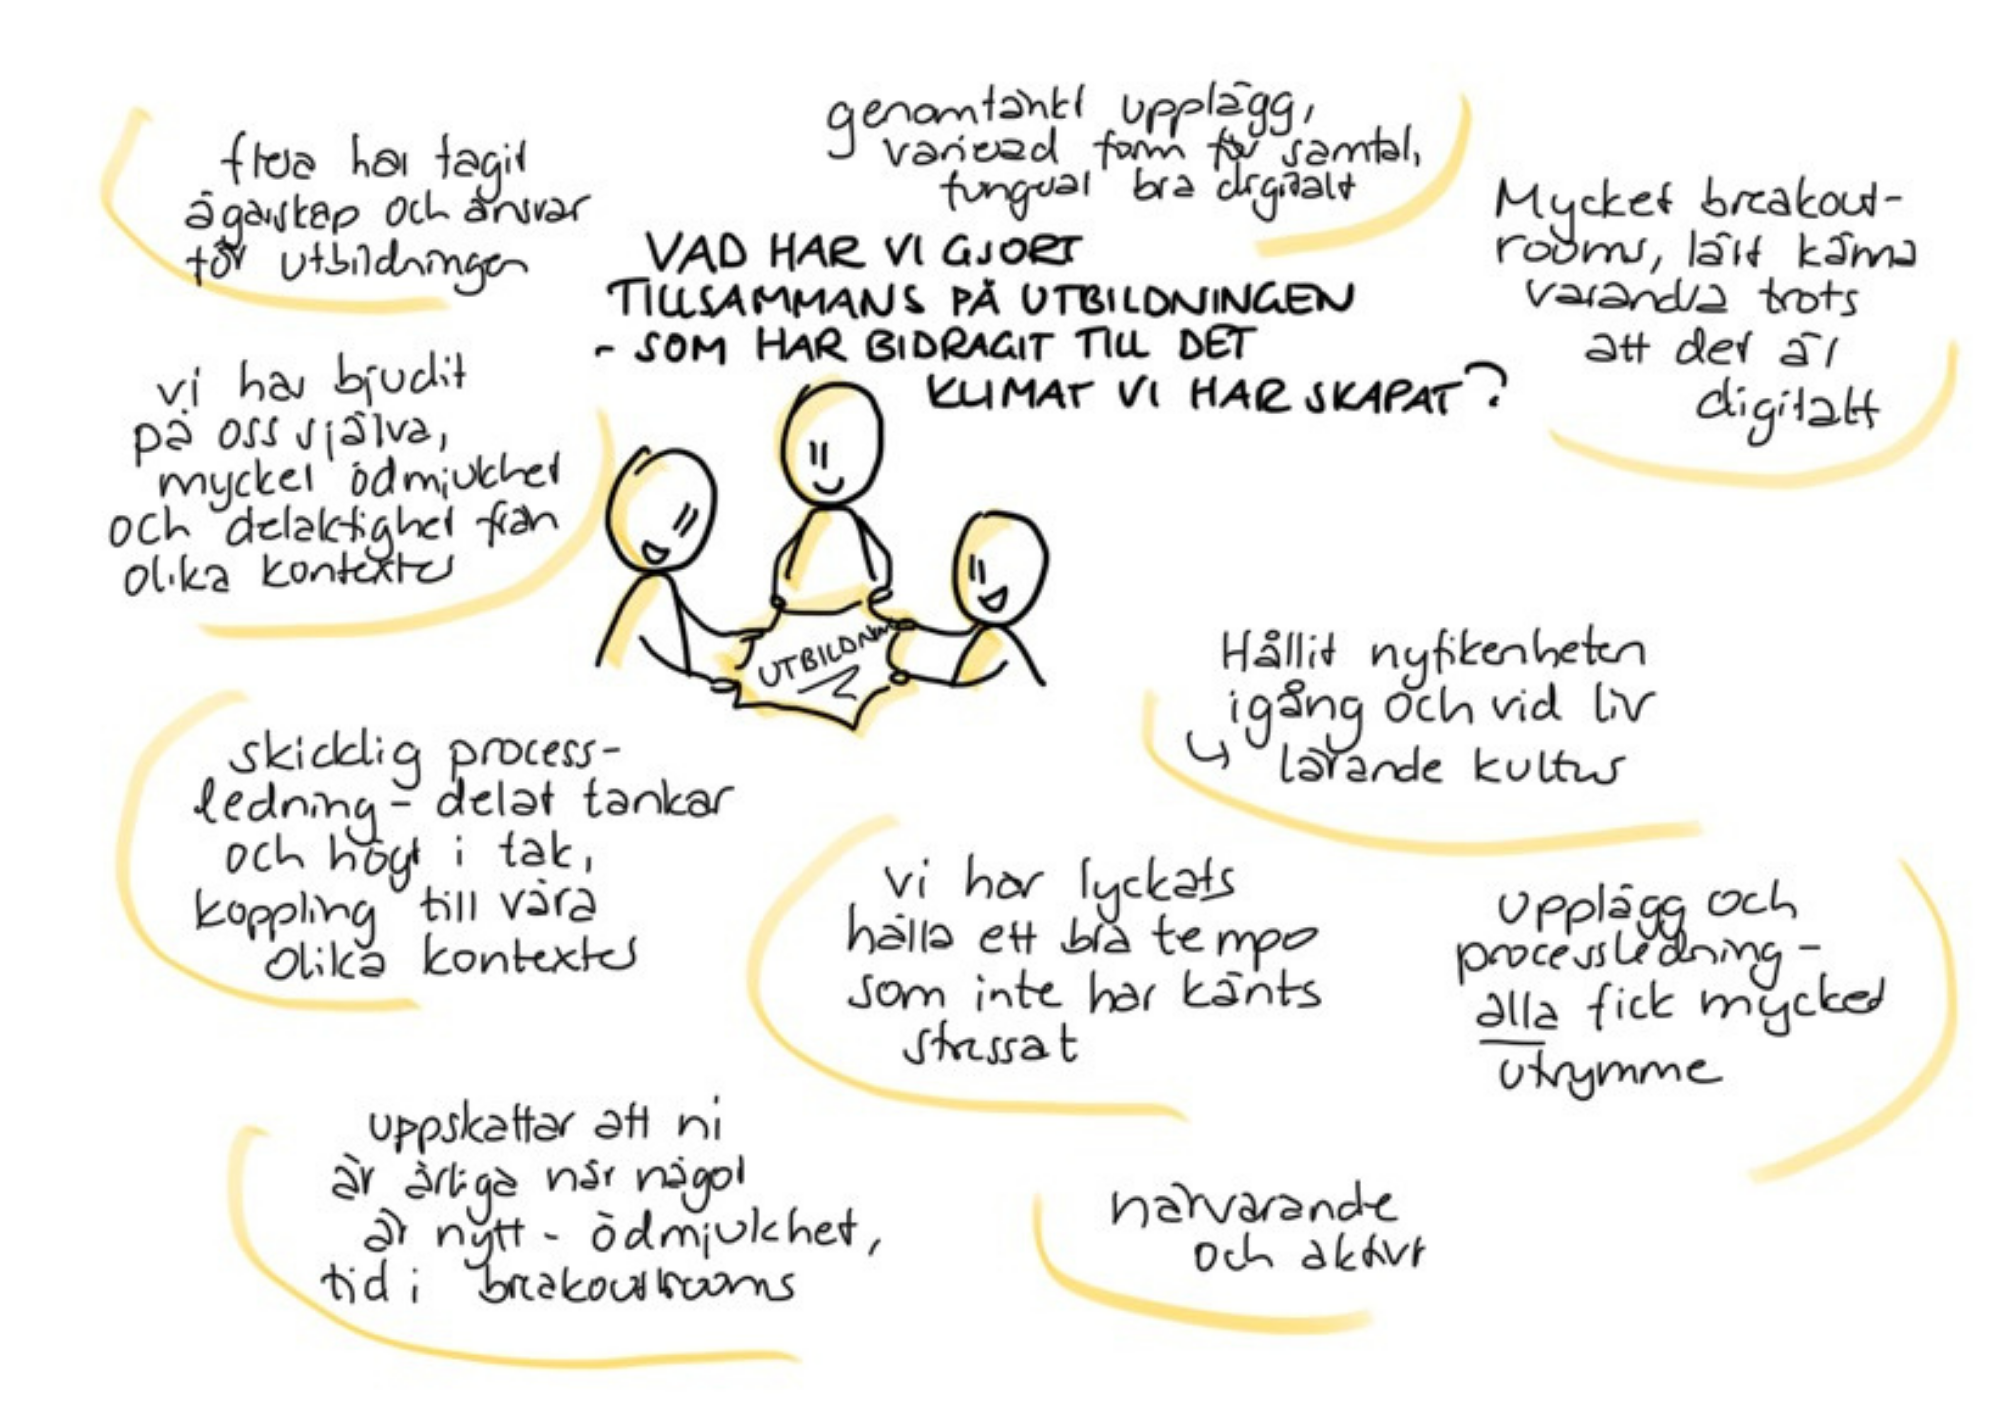 VAD HAR VI GJORT
TILLSAMMANS PÅ UTBILDNINGEN
- SOM HAR BIDRAGIT TILL DET
KLIMAT VI HAR SKAPAT?
flera har tagit
ägarskap och ansvar
för utbildningen
genomtänkt upplägg,
varierad form för samtal,
fungerat bra digitalt
Mycket breakout-
rooms, lärt känna
varandra trots
att det är
digitalt
vi har bjudit
på oss själva,
mycket ödmjukhet
och delaktighet från
olika kontexter
UTBILDNING
Hållit nyfikenheten
igång och vid liv
↳ lärande kultur
skicklig process-
ledning - delat tankar
och högt i tak,
koppling till våra
olika kontexter
vi har lyckats
hålla ett bra tempo
som inte har känts
stressat
Upplägg och
processledning -
alla fick mycket
utrymme
uppskattar att ni
är ärliga när något
är nytt - ödmjukhet,
tid i breakoutrooms
närvarande
och aktivt